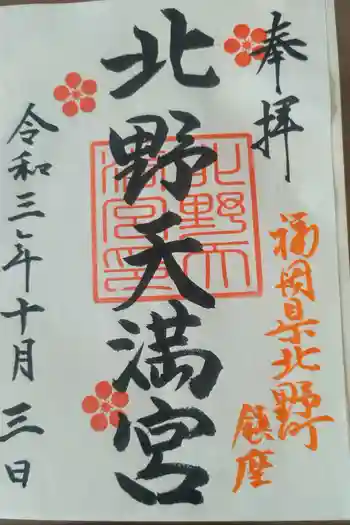 奉拝
福岡県北野町
鎮座
北野天満宮
北野天満宮印
令和三年十月三日